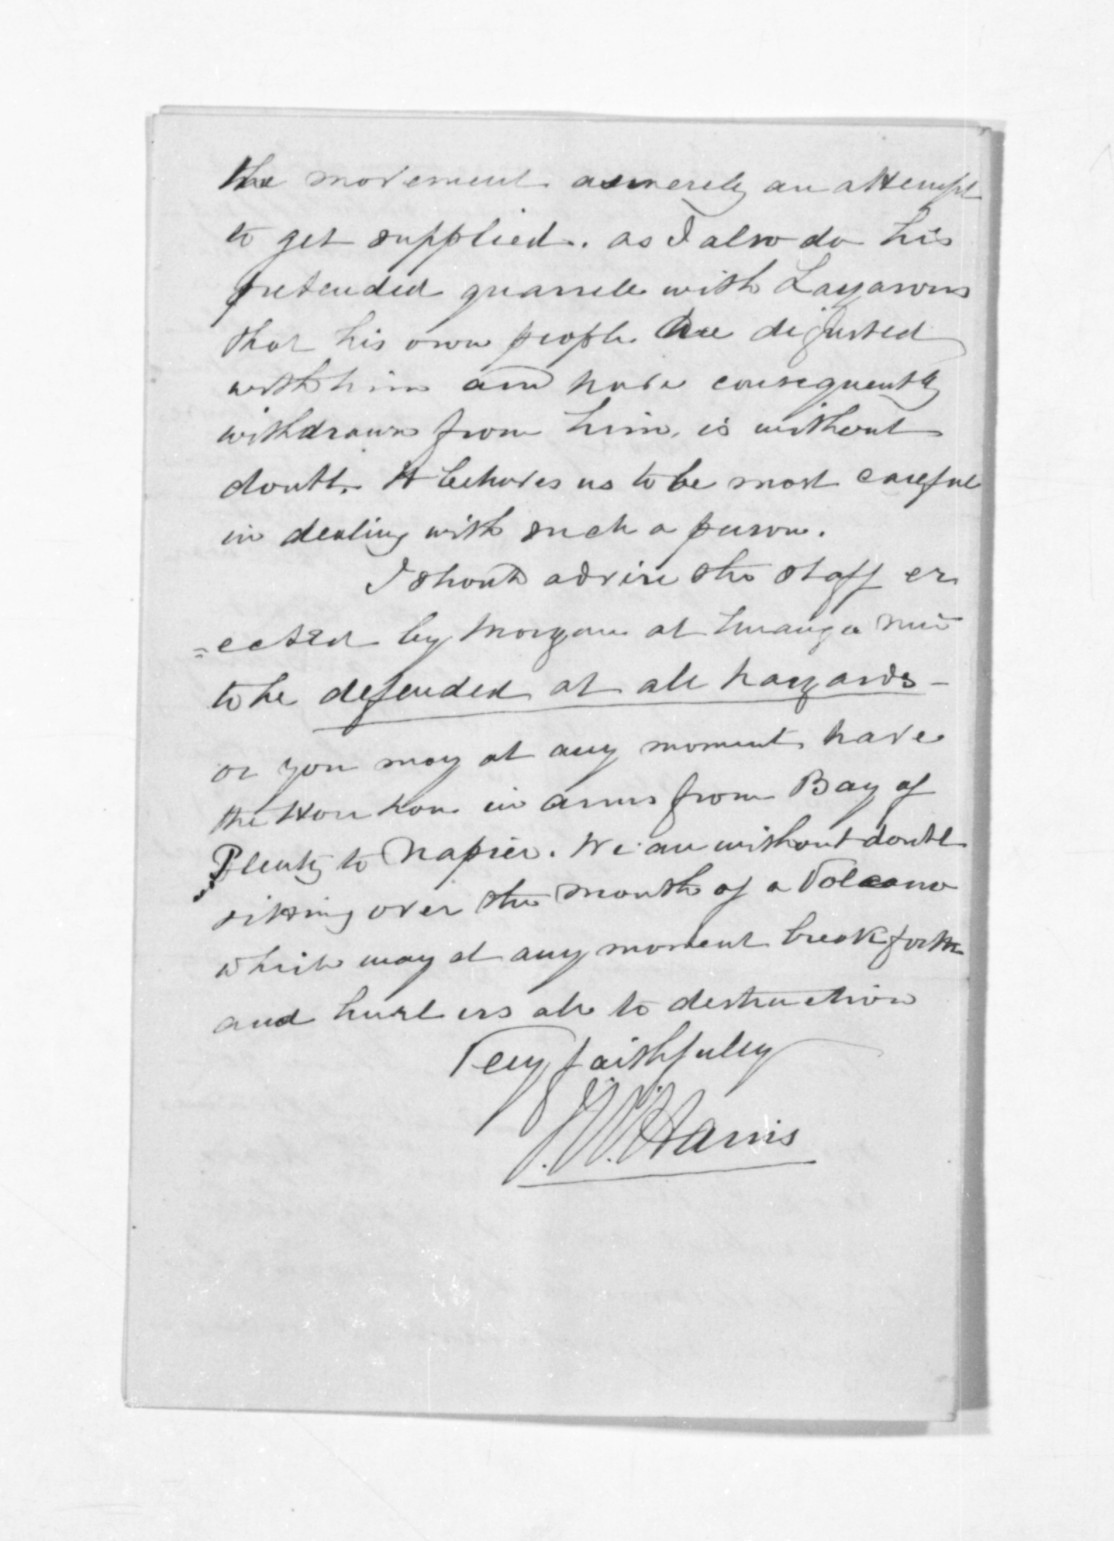 the movement as merely an attempt
to get supplied. as I also do his
pretended quarrele with Lazarous
that his own people are disgusted
with him and have consequently
withdrawn from him, is without
doubt. It behoves us to be most careful
in dealing with such a person.
I should advise the staff er
=ected by Morgan at Turanga nui
to be defended at all hazards -
or you may at any moment have
the Hou Hou in arms from Bay of
Plenty to Napier. We are without doubt
sitting over the mouth of a Volcano
which may at any moment break forth
and hurl us all to destruction
Very faithfully
J. W. Harris